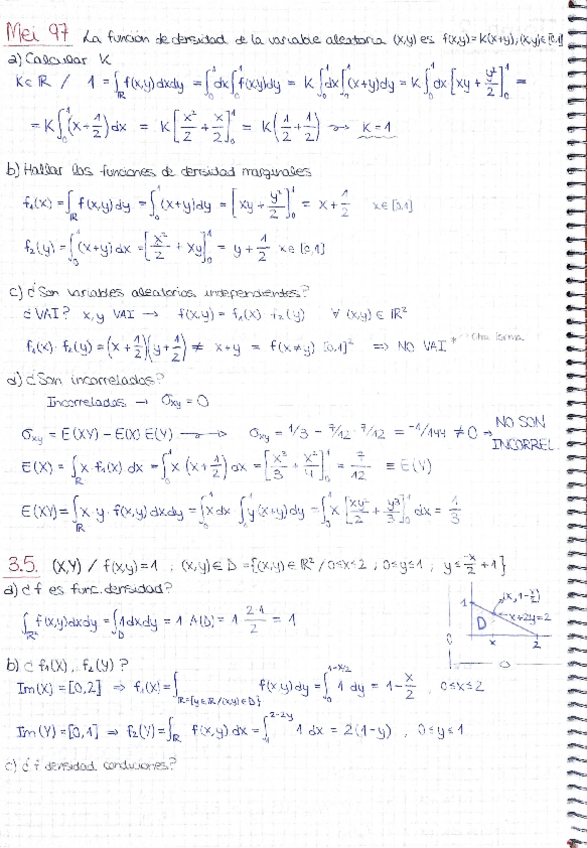 Mei 97 La función de densidad de la variable aleatoria (x,y) es f(x,y)=K(x+y), (x,y)∈[0,1]
a) Calcular K
K∈ℝ / 1 = ∫_ℝ f(x,y)dxdy = ∫₀¹dx∫₀¹f(x,y)dy = K∫₀¹dx∫₀¹(x+y)dy = K∫₀¹dx[xy + y²/2]₀¹ =
= K∫₀¹(x+1/2)dx = K[x²/2 + x/2]₀¹ = K(1/2 + 1/2) ⇝ K=1
b) Hallar las funciones de densidad marginales
f₁(x) = ∫_ℝ f(x,y)dy = ∫₀¹(x+y)dy = [xy + y²/2]₀¹ = x + 1/2 x∈[0,1]
f₂(y) = ∫₀¹(x+y)dx = [x²/2 + xy]₀¹ = y + 1/2 x∈[0,1]
c) ¿Son variables aleatorias independientes?
¿VAI? x,y VAI → f(x,y) = f₁(x)·f₂(y) ∀ (x,y)∈ℝ²
f₁(x)·f₂(y) = (x + 1/2)(y + 1/2) ≠ x+y = f(x,y) [0,1]² ⇒ NO VAI * Otra forma
d) ¿Son incorreladas?
Incorreladas → σxy = 0
σxy = E(XY) − E(X)E(Y) → σxy = 1/3 − 7/12 · 7/12 = −1/144 ≠ 0 → NO SON INCORREL.
E(X) = ∫_ℝ x f₁(x) dx = ∫₀¹ x (x + 1/2) dx = [x³/3 + x²/4]₀¹ = 7/12 ≡ E(Y)
E(XY) = ∫_ℝ x y · f(x,y)dxdy = ∫₀¹xdx ∫₀¹y(x+y)dy = ∫₀¹x[xy²/2 + y³/3]₀¹ dx = 1/3
3.5. (X,Y) / f(x,y)=1 ; (x,y)∈D = {(x,y)∈ℝ² / 0≤x≤2 ; 0≤y≤1 ; y≤ -x/2 +1}
a) ¿f es func. densidad?
∫_ℝ² f(x,y)dxdy = ∫_D 1dxdy = 1 A(D) = 1 · 2·1/2 = 1
1 D (x, 1-x/2) x+2y=2 x 2
b) ¿f₁(X), f₂(Y)?
Im(X) = [0,2] ⇒ f₁(X) = ∫_ℝ={y∈ℝ/(x,y)∈D} f(x,y)dy = ∫₀^1-x/2 1 dy = 1 − x/2 , 0≤x≤2
Im(Y) = [0,1] ⇒ f₂(Y) = ∫_ℝ f(x,y)dx = ∫^2-2y 1 dx = 2(1−y) , 0≤y≤1
c) ¿f densidad condiciones?